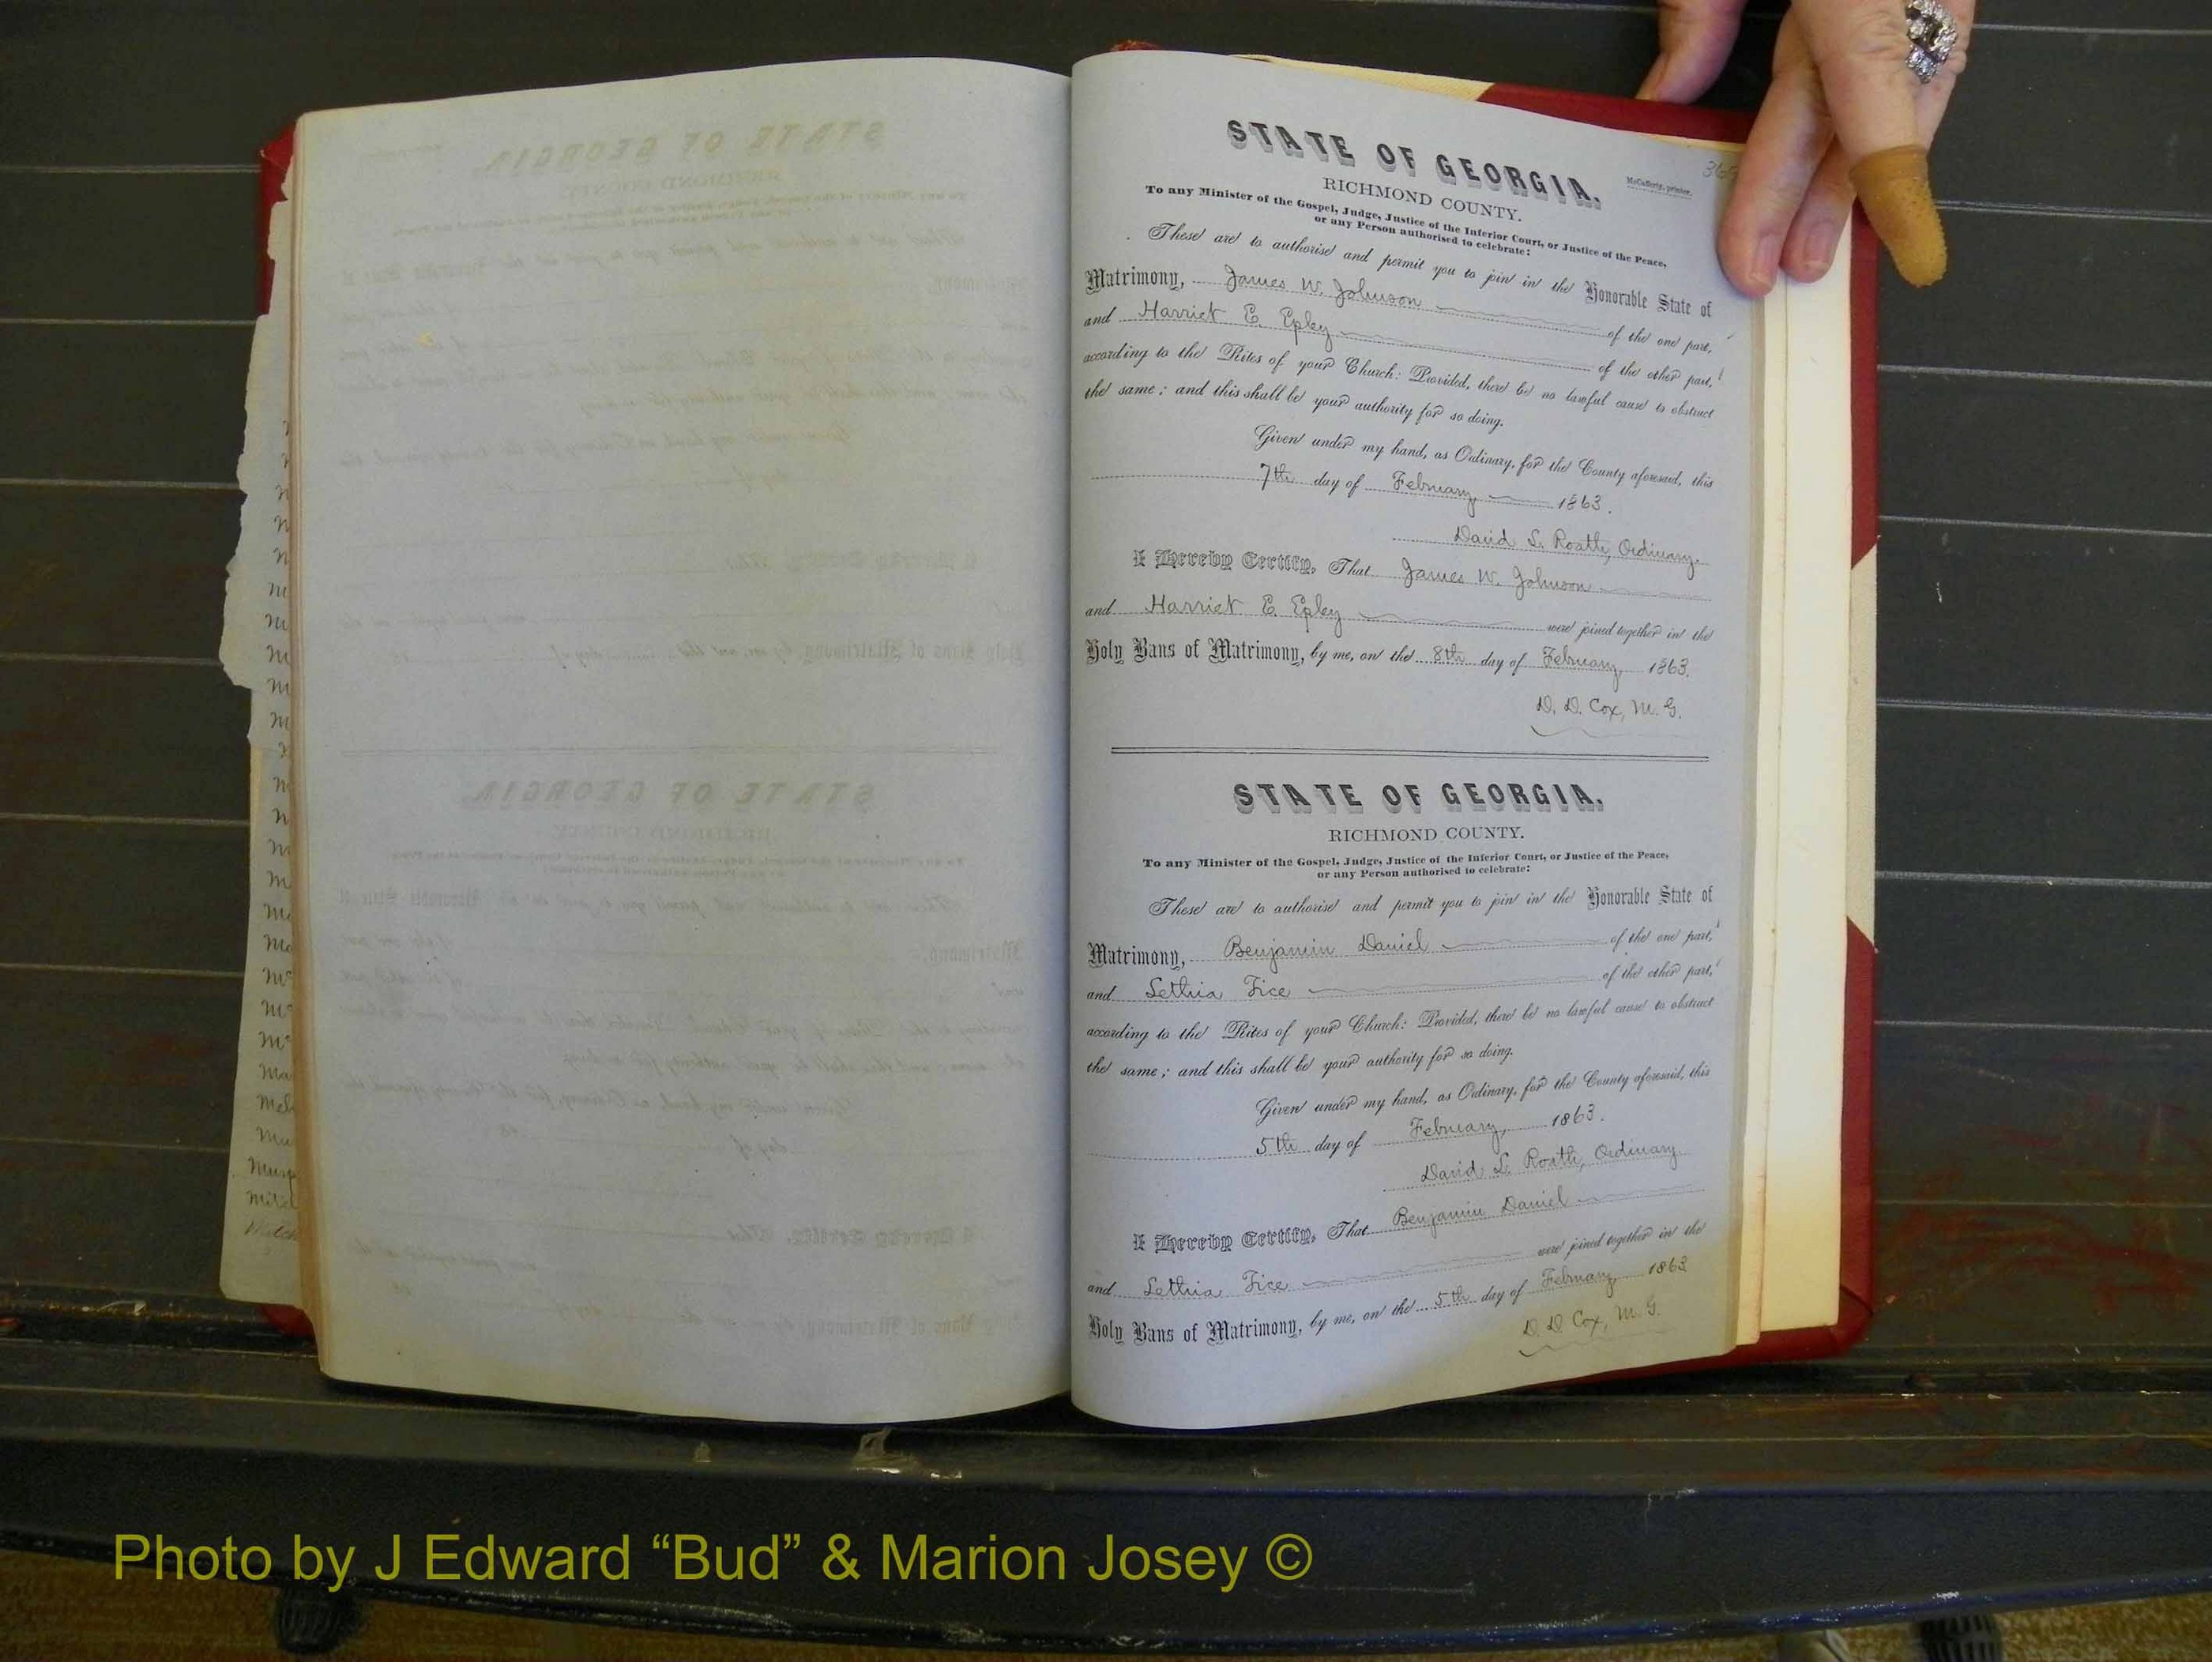 STATE OF GEORGIA,
McCafferty, printer.
RICHMOND COUNTY.
To any Minister of the Gospel, Judge, Justice of the Inferior Court, or Justice of the Peace,
or any Person authorised to celebrate:
These are to authorise and permit you to join in the Honorable State of
Matrimony, James W. Johnson of the one part,
and Harriet E. Epley of the other part,
according to the Rites of your Church: Provided, there be no lawful cause to obstruct
the same; and this shall be your authority for so doing.
Given under my hand, as Ordinary, for the County aforesaid, this
7th day of February 1863.
David L. Roath, Ordinary.
I Hereby Certify, That James W. Johnson
and Harriet E. Epley were joined together in the
Holy Bans of Matrimony, by me, on the 8th day of February 1863.
D. D. Cox, M. G.
STATE OF GEORGIA,
RICHMOND COUNTY.
To any Minister of the Gospel, Judge, Justice of the Inferior Court, or Justice of the Peace,
or any Person authorised to celebrate:
These are to authorise and permit you to join in the Honorable State of
Matrimony, Benjamin Daniel of the one part,
and Lethia Fice of the other part,
according to the Rites of your Church: Provided, there be no lawful cause to obstruct
the same; and this shall be your authority for so doing.
Given under my hand, as Ordinary, for the County aforesaid, this
5th day of February, 1863.
David L. Roath, Ordinary
I Hereby Certify, That Benjamin Daniel
and Lethia Fice were joined together in the
Holy Bans of Matrimony, by me, on the 5th day of February 1863
D. D. Cox, M. G.
Photo by J Edward “Bud” & Marion Josey ©